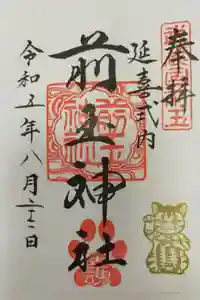 奉拝
延喜式内
前玉神社
令和五年八月二十二日